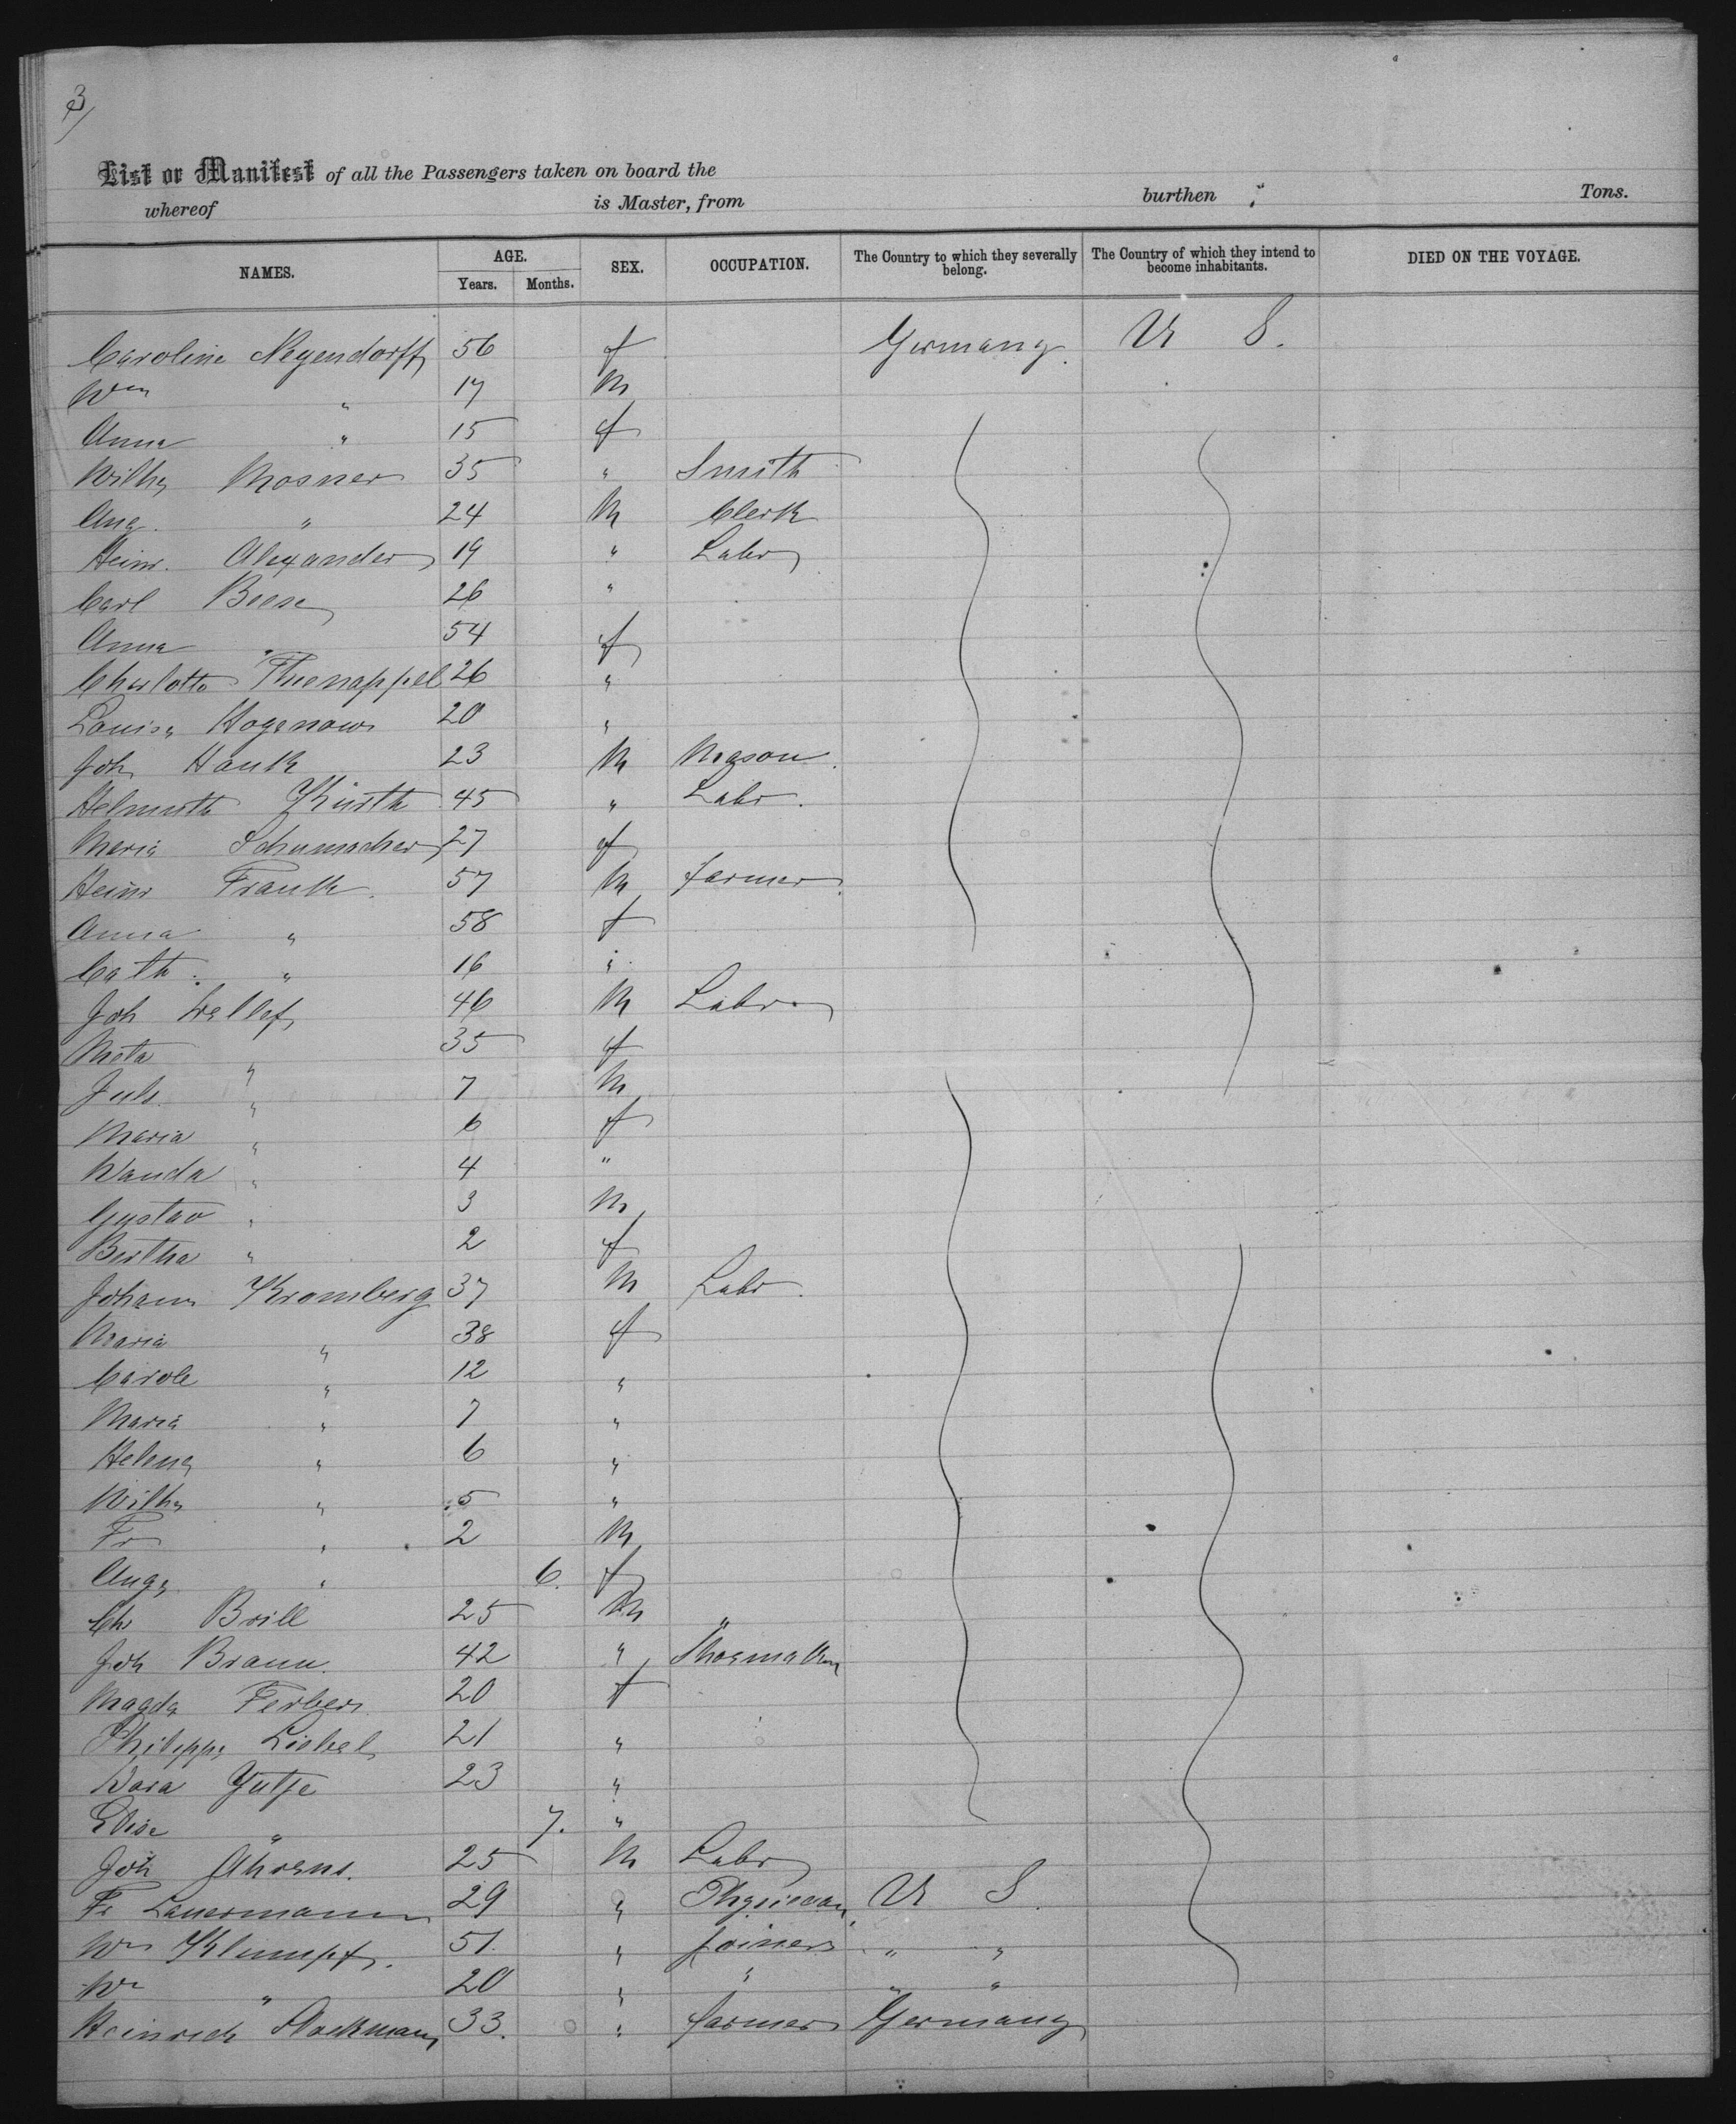 3/
List or Manifest of all the Passengers taken on board the
whereof is Master, from burthen Tons.
NAMES. AGE. Years. Months. SEX. OCCUPATION. The Country to which they severally belong. The Country of which they intend to become inhabitants. DIED ON THE VOYAGE.
Caroline Negendorff 56 f Germany U S.
Wm " 17 M
Anna " 15 f
Wilhe Mosner 35 " Smith
Aug. " 24 M Clerk
Heinr. Alexander 19 " Labr
Carl Beese 26 "
Anna " 54 f
Charlotte Thienappel 26 "
Louise Hogenow 20 "
Joh Hank 23 M Mason
Helmuth Kürth 45 " Labr.
Maria Schumacher 27 f
Heinr Frank. 57 M farmer
Anna " 58 f
Cath. " 16 "
Joh 46 M Labr
Meta " 35 f
Juls. " 7 M
Maria " 6 f
Wanda " 4 "
Gustav " 3 M
Bertha " 2 f
Johann Kromberg 37 M Labr.
Maria " 38 f
Carole " 12 "
Maria " 7 "
Helene " 6 "
Wilhe " 5 "
Fr " 2 M
Auge " 6. f
Ch Brill 25 M "
Joh Braun. 42 " Shoemaker
Magda Ferber 20 f
Philippe Liebel 21 "
Dora 23 "
Elise " 7. "
Joh Ahrens. 25 M Labr
Fr Lauermann 29 " Physician U S.
Wm Klumpf. 51. " joiner " "
Wm " 20 " " " "
Heinrich 33. " farmer Germany